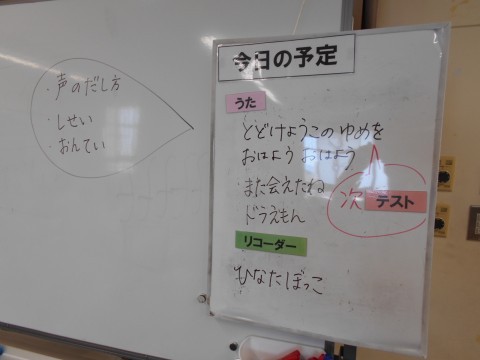 ・声のだし方
・しせい
・おんてい
今日の予定
うた
とどけようこのゆめを
おはようおはよう
また会えたね
ドラえもん
次 テスト
リコーダー
ひなたぼっこ